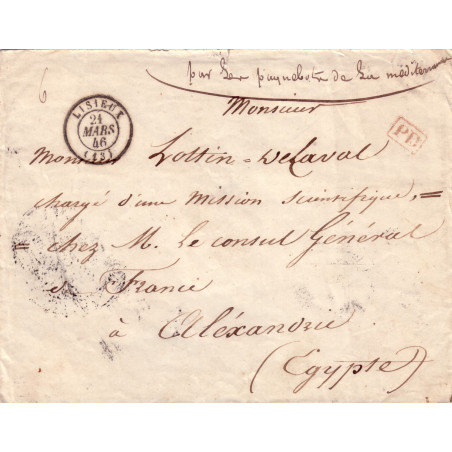 6
par les paquebots de la méditerranée
Monsieur
LISIEUX
21
MARS
46
(13)
PD
Monsieur Lottin = de Laval
chargé d'une mission scientifique, =
= chez M. Le consul Général
de France
à Aléxandrie
(Egypte)